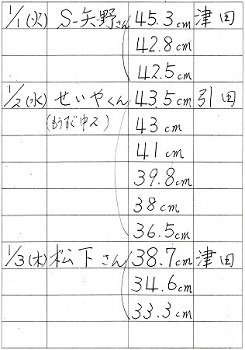 1/1(火) S-矢野さん 45.3cm 津田
42.8cm
42.5cm
1/2(水) せいやくん 43.5cm 引田
(もうすぐ中2) 43cm
41cm
39.8cm
38cm
36.5cm
1/3(木) 松下さん 38.7cm 津田
34.6cm
33.3cm